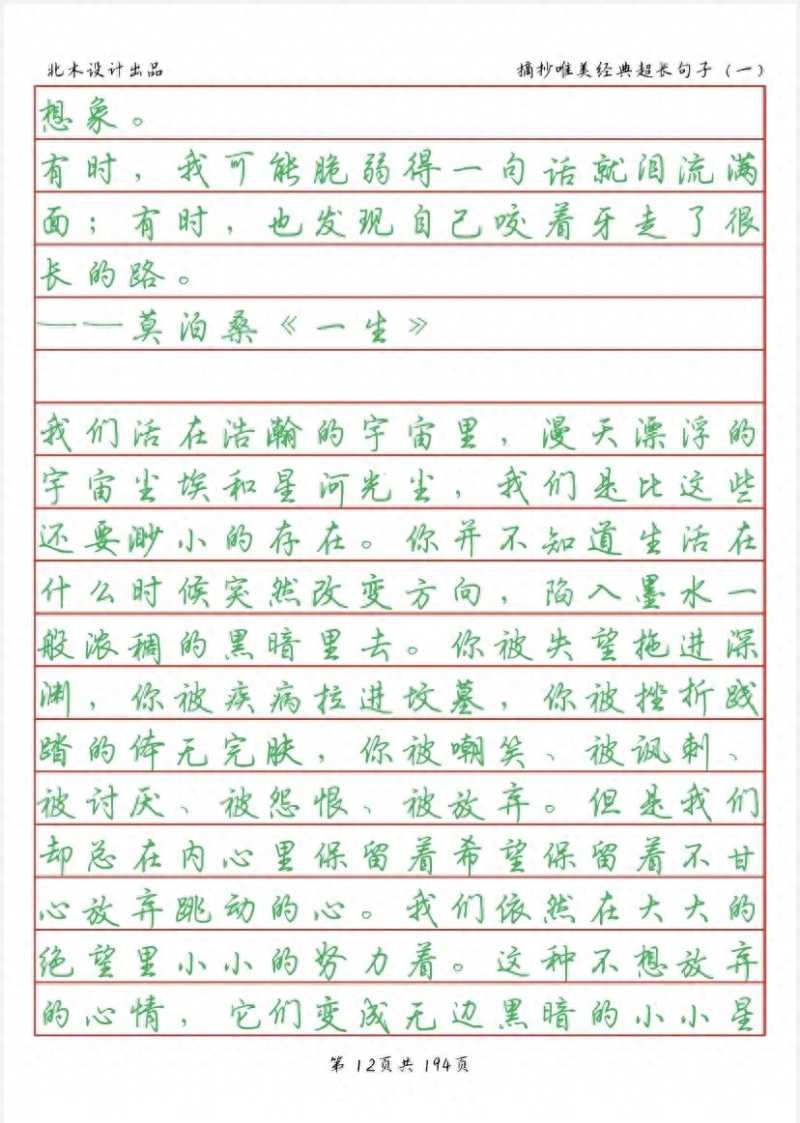 北木设计出品
摘抄唯美经典超长句子（一）
想象。
有时，我可能脆弱得一句话就泪流满
面；有时，也发现自己咬着牙走了很
长的路。
——莫泊桑《一生》
我们活在浩瀚的宇宙里，漫天漂浮的
宇宙尘埃和星河光尘，我们是比这些
还要渺小的存在。你并不知道生活在
什么时候突然改变方向，陷入墨水一
般浓稠的黑暗里去。你被失望拖进深
渊，你被疾病拉进坟墓，你被挫折践
踏的体无完肤，你被嘲笑、被讽刺、
被讨厌、被怨恨、被放弃。但是我们
却总在内心里保留着希望保留着不甘
心放弃跳动的心。我们依然在大大的
绝望里小小的努力着。这种不想放弃
的心情，它们变成无边黑暗的小小星
第 12页共 194页